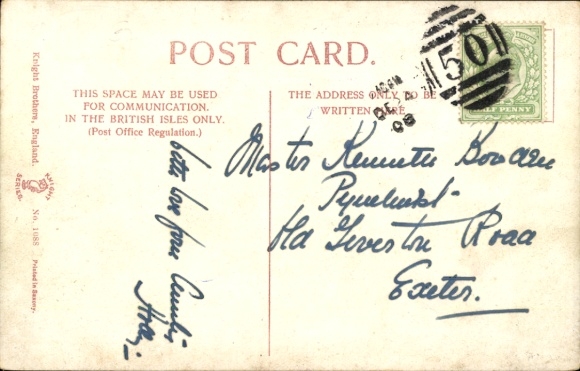 POST CARD.
THIS SPACE MAY BE USED
FOR COMMUNICATION.
IN THE BRITISH ISLES ONLY.
(Post Office Regulation.)
THE ADDRESS ONLY TO BE
WRITTEN HERE
50
DE 4
08
HALF PENNY
Master Kenneth Bowden
Old Tiverton Road
Exeter.
with love from
Knight Brothers, England.
KNIGHT
SERIES.
No. 1688
Printed in Saxony.